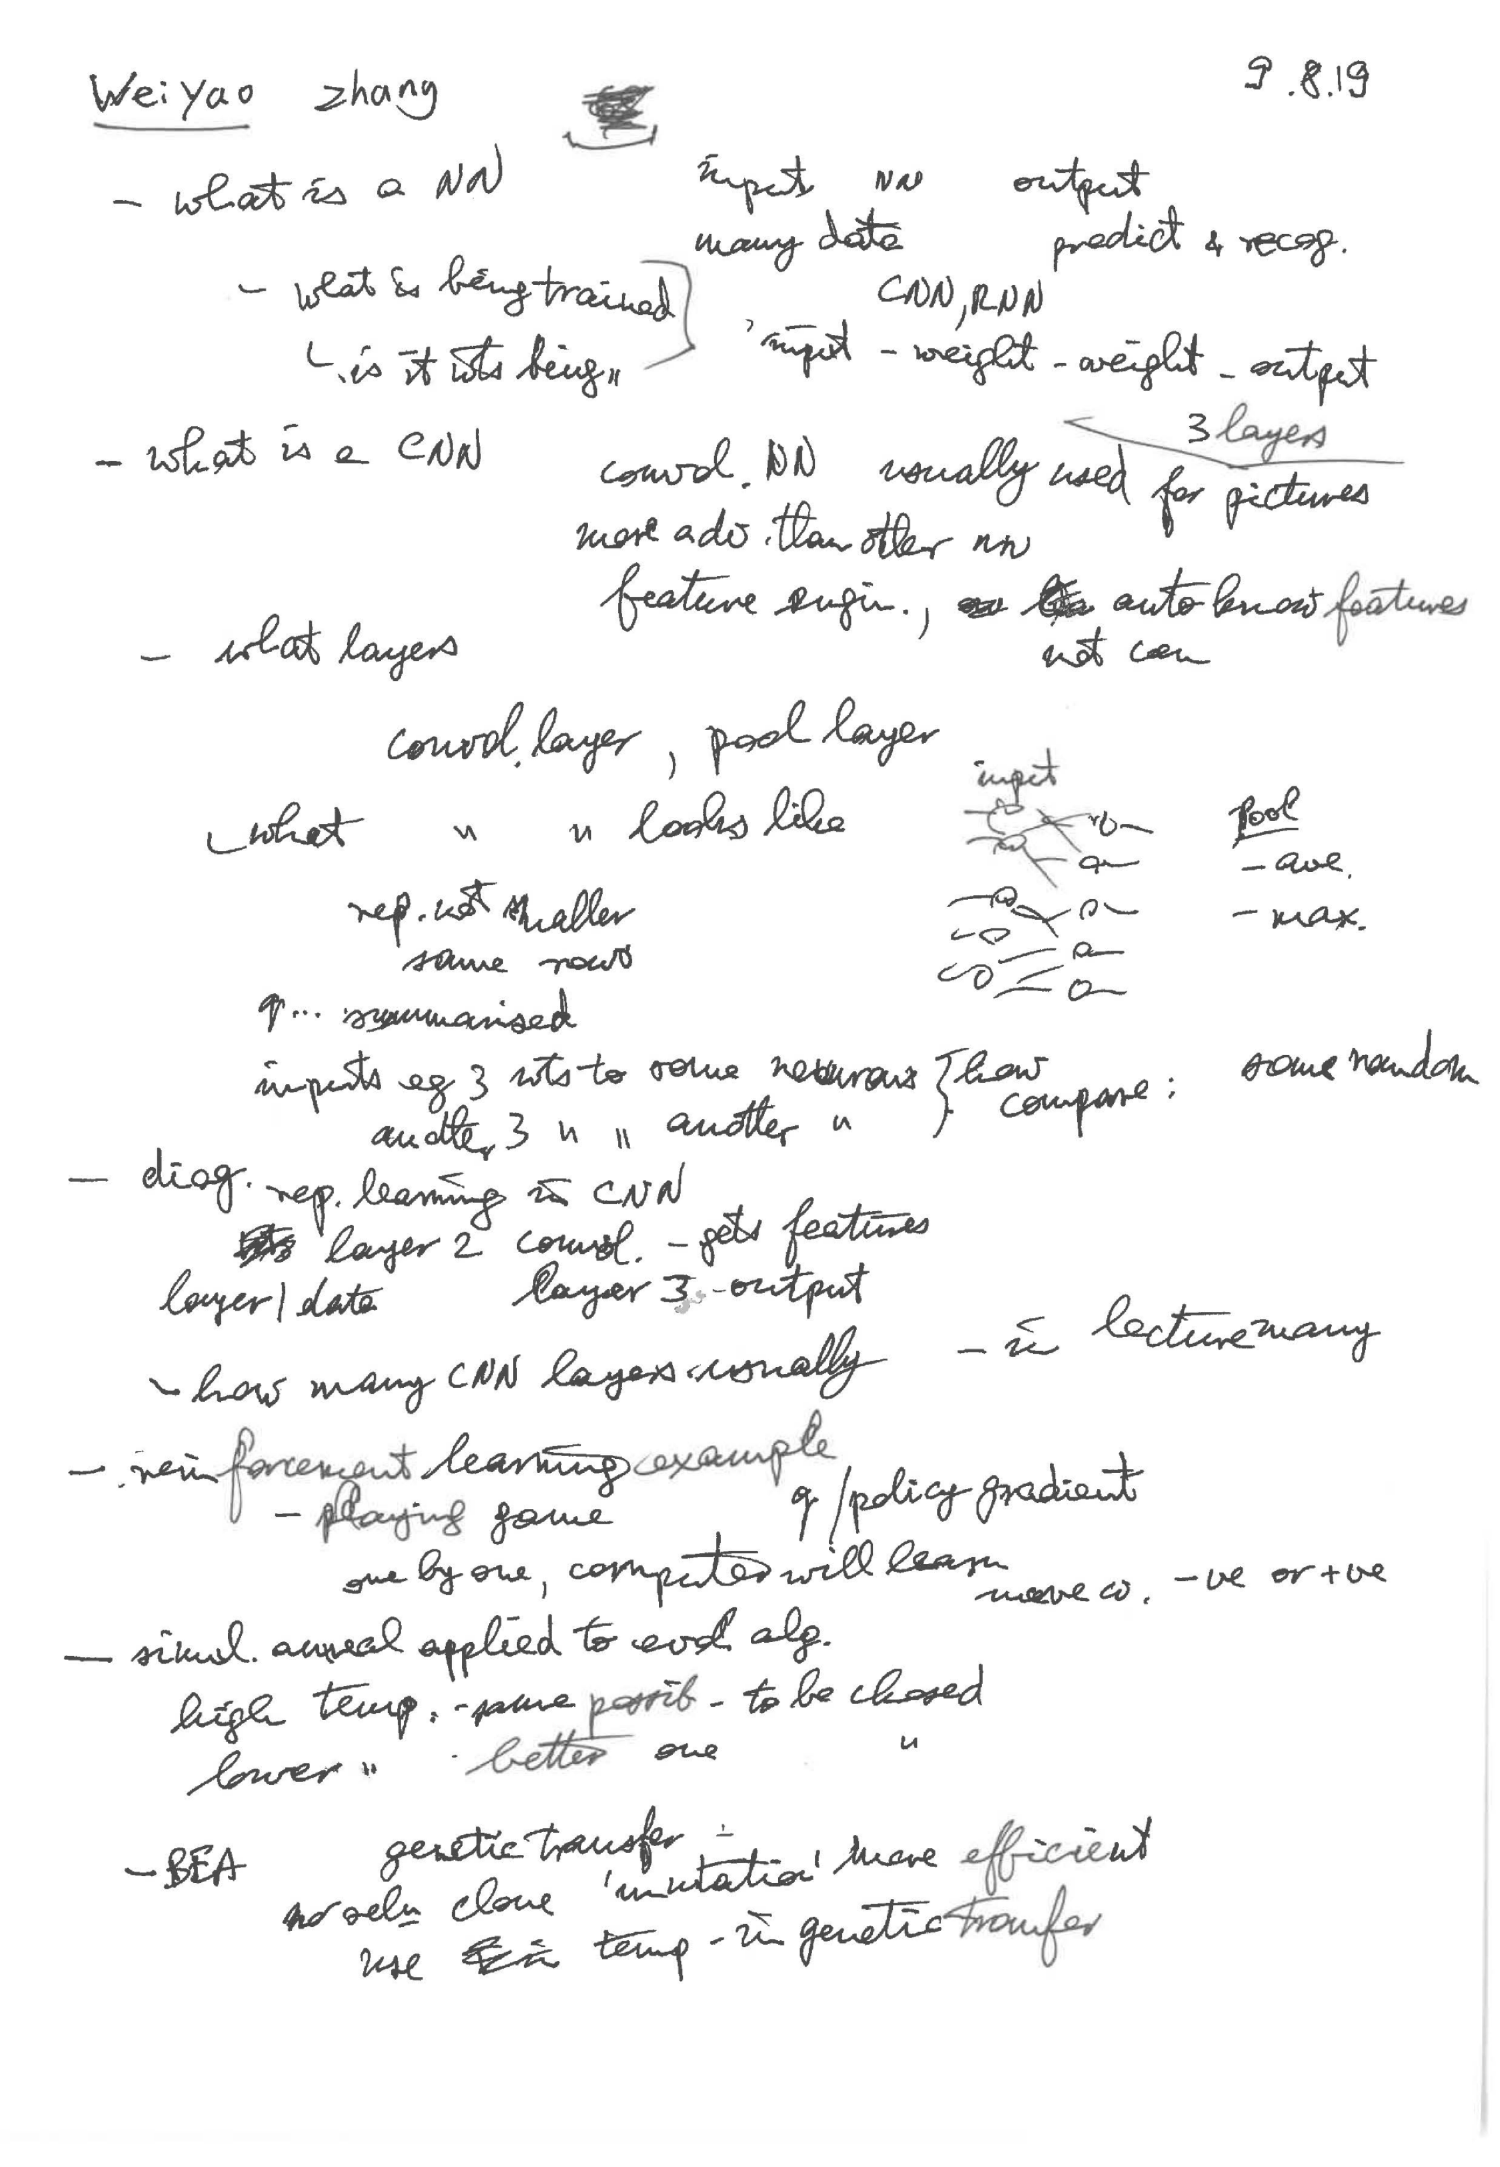 Weiyao zhang 9.8.19
- what is a NN input NN output
many data predict & recog.
- what is being trained CNN, RNN
is it wts being " input - weight - weight - output
3 layers
- what is a CNN convol. NN usually used for pictures
more adv. than other nn
feature engin., auto know features
- what layers not can
convol. layer, pool layer
input
what " " looks like Pool
- ave.
rep. not smaller - max.
same rows
q... summarised
inputs eg 3 wts to some neurons } how compare: some random
another 3 " " another "
- diag. rep. learning in CNN
layer 2 convol. - gets features
layer 1 data layer 3 - output
- how many CNN layers usually - in lecture many
- reinforcement learning example
- playing game q / policy gradient
one by one, computer will learn
move -ve or +ve
- simul. anneal applied to evol. alg.
high temp. - same possib - to be chosed
lower " better one "
- BEA genetic transfer -
no seln clone 'mutation' more efficient
use temp - in genetic transfer